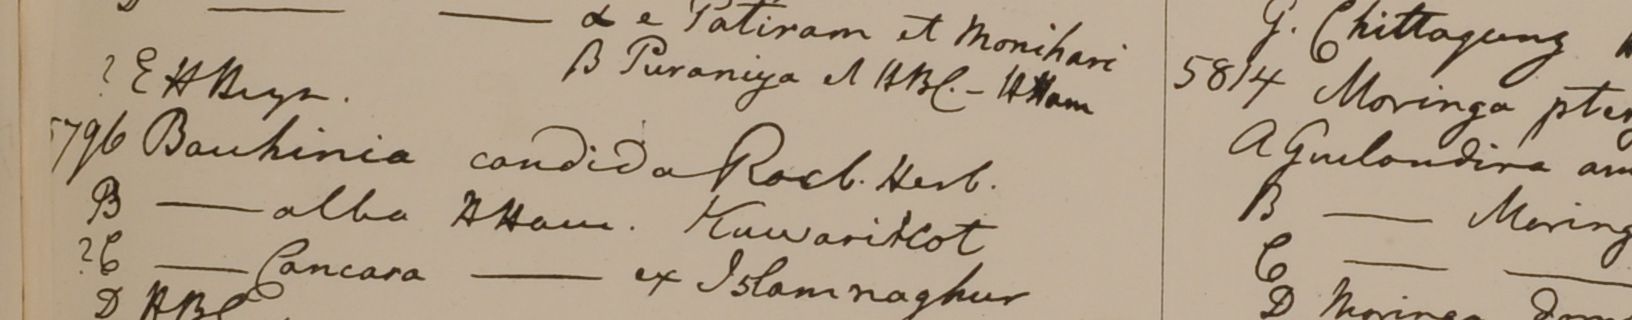 α e Patiram et Monihari
β Puraniya et HBC. - HHam
? E H Heyn.
5796 Bauhinia candida Roxb. Herb.
B — alba HHam. Kuwarikot
? C — Cancara — ex Islamnaghur
D HBC.
G. Chittagung
5814 Moringa pter
A Guilandina
B — Moring
C — —
D Moringa